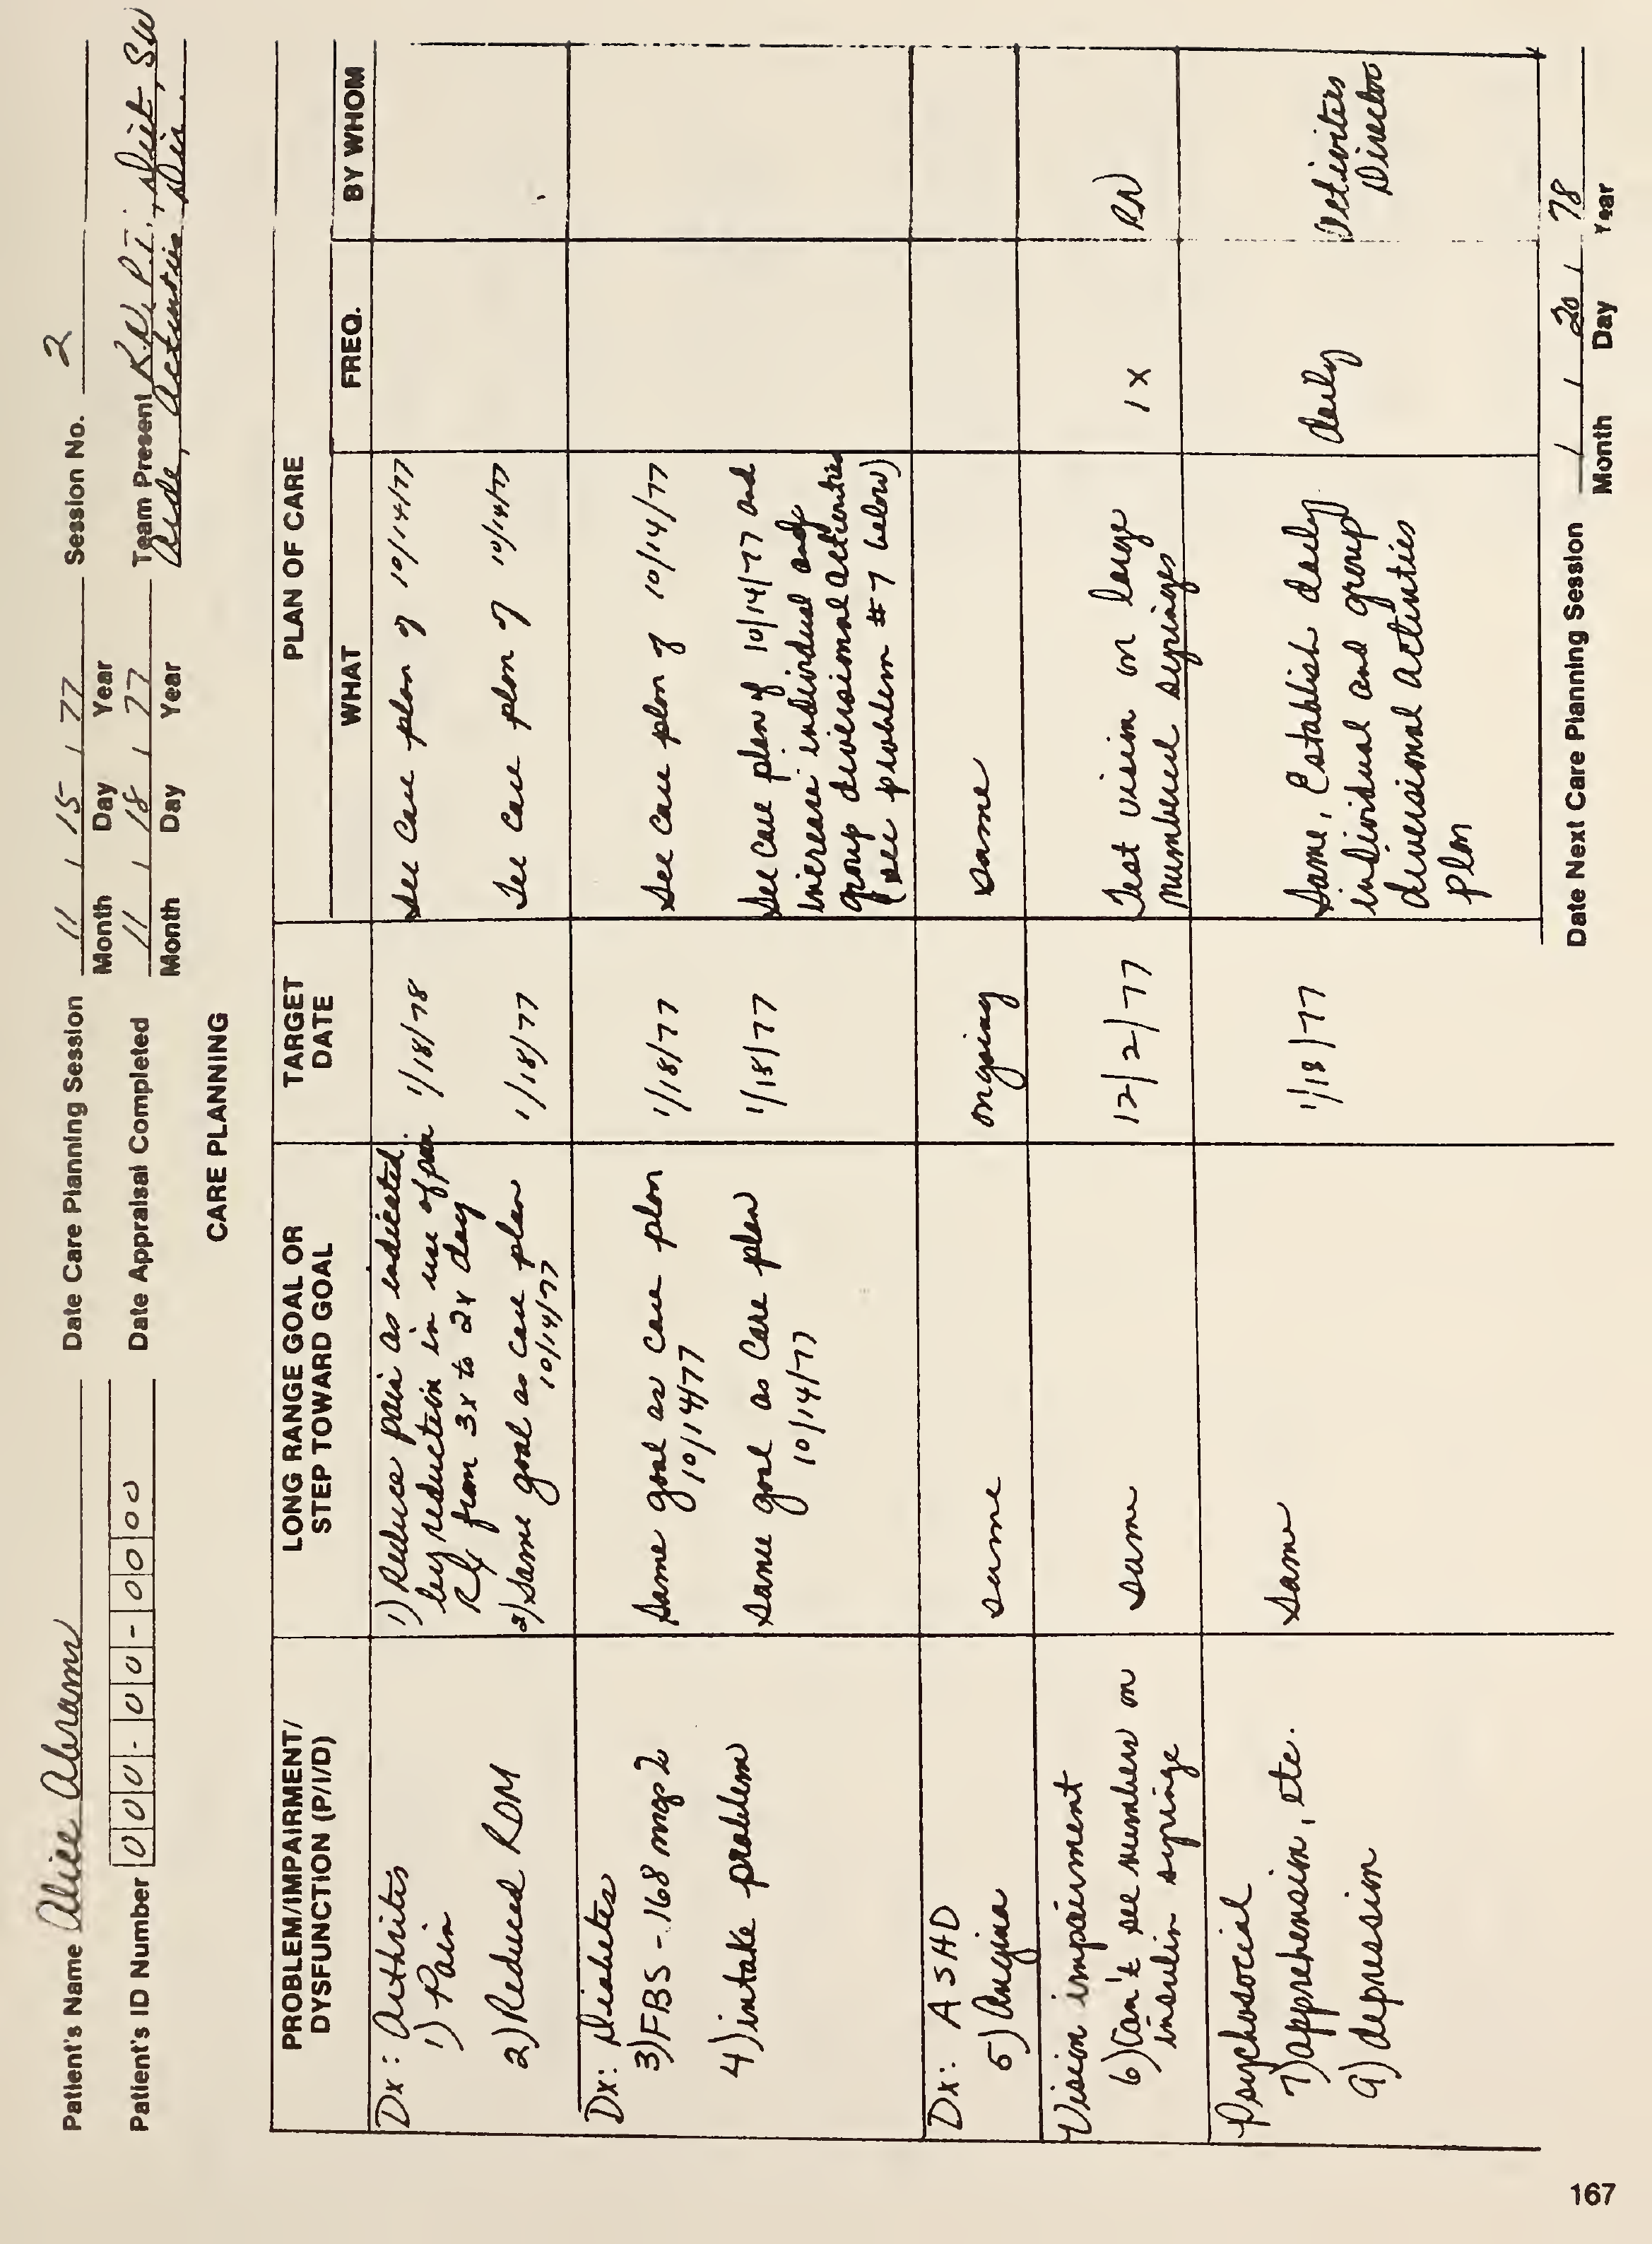 Patient's Name Alice Abrams Date Care Planning Session 11 / 15 / 77 Session No. 2
Month Day Year
Patient's ID Number 000-00-0000 Date Appraisal Completed 11 / 18 / 77 Team Present R.N., P.T., Diet, SW
Month Day Year Aide, Activities Dir.
CARE PLANNING
PROBLEM/IMPAIRMENT/
DYSFUNCTION (P/I/D)
LONG RANGE GOAL OR
STEP TOWARD GOAL
TARGET
DATE
PLAN OF CARE
WHAT FREQ. BY WHOM
Dx: Arthrites
1) Pain
1) Reduce pain as indicated
by reduction in use of pain
Rx from 3x to 2x day
1/18/78
See Care plan of 10/14/77
2) Reduced ROM
2) Same goal as care plan
10/14/77
1/18/77
See care plan of 10/14/77
Dx: Diabetes
3) FBS - 168 mg
Same goal as care plan
10/14/77
1/18/77
See care plan of 10/14/77
4) intake problem
Same goal as Care plan
10/14/77
1/18/77
See Care plan of 10/14/77 and
increase individual and
group diversional activities
(see problem #7 below)
Dx: ASHD
5) Angina
same
ongoing
same
Vision impairment
6) Can't see numbers on
insulin syringe
same
12/2/77
Test vision on large
numbered syringes
1x
RN
Psychosocial
7) apprehension, etc.
9) depression
Same
1/18/77
Same, Establish daily
individual and group
diversional activities
plan
daily
Activities
Director
Date Next Care Planning Session 1 / 20 / 78
Month Day Year
167